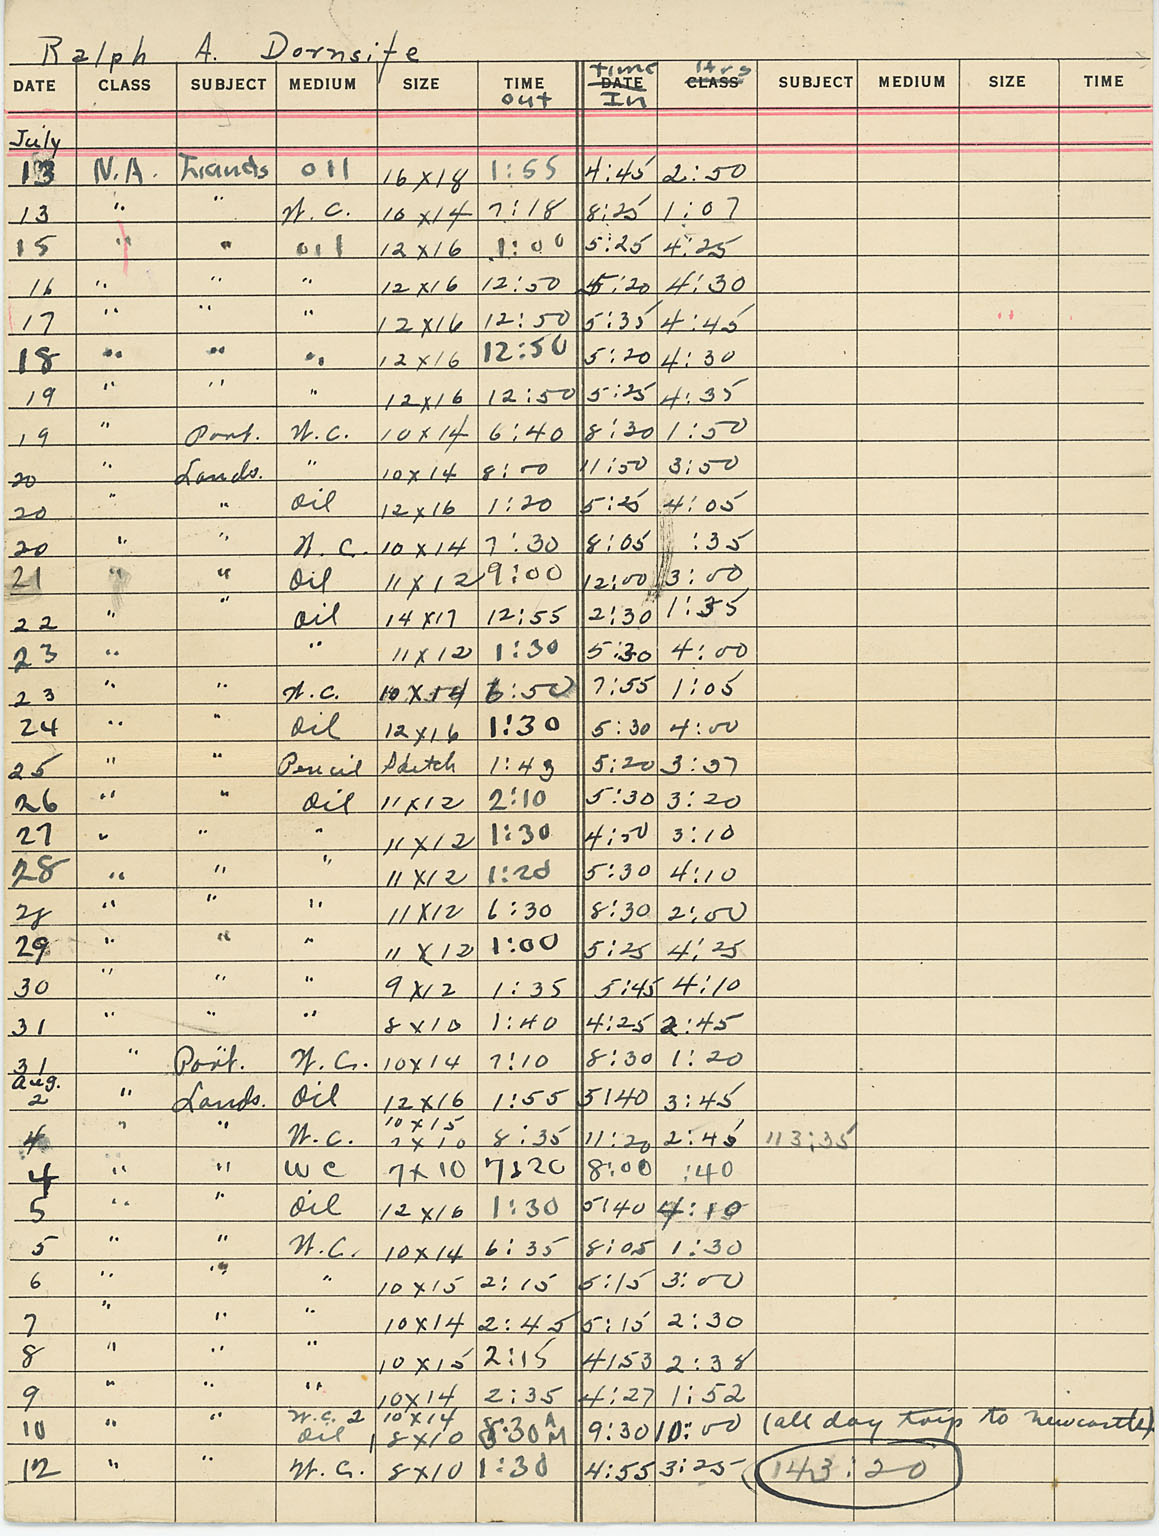 Ralph A. Dornsife
DATE CLASS SUBJECT MEDIUM SIZE TIME out time DATE In Hrs CLASS SUBJECT MEDIUM SIZE TIME
July
13 N.A. Lands oil 16 x 18 1:55 4:45 2:50
13 " " W.C. 10 x 14 7:18 8:25 1:07
15 " " oil 12 x 16 1:00 5:25 4:25
16 " " " 12 x 16 12:50 5:20 4:30
17 " " " 12 x 16 12:50 5:35 4:45 "
18 " " " 12 x 16 12:50 5:20 4:30
19 " " " 12 x 16 12:50 5:25 4:35
19 " Port. W.C. 10 x 14 6:40 8:30 1:50
20 " Lands. " 10 x 14 8:00 11:50 3:50
20 " " Oil 12 x 16 1:20 5:25 4:05
20 " " W.C. 10 x 14 7:30 8:05 :35
21 " " Oil 11 x 12 9:00 12:00 3:00
22 " " Oil 14 x 17 12:55 2:30 1:35
23 " " 11 x 12 1:30 5:30 4:00
23 " " W.C. 10 x 14 6:50 7:55 1:05
24 " " Oil 12 x 16 1:30 5:30 4:00
25 " " Pencil Sketch 1:43 5:20 3:37
26 " " Oil 11 x 12 2:10 5:30 3:20
27 " " " 11 x 12 1:30 4:50 3:10
28 " " " 11 x 12 1:20 5:30 4:10
28 " " " 11 x 12 6:30 8:30 2:00
29 " " " 11 x 12 1:00 5:25 4:25
30 " " " 9 x 12 1:35 5:45 4:10
31 " " " 8 x 10 1:40 4:25 2:45
31 " Port. W.C. 10 x 14 7:10 8:30 1:20
Aug.
2 " Lands. Oil 12 x 16 1:55 5:40 3:45
4 " " W.C. 10 x 15 7 x 10 8:35 11:20 2:45 113:35
4 " " WC 7 x 10 7:20 8:00 :40
5 " " Oil 12 x 16 1:30 5:40 4:10
5 " " W.C. 10 x 14 6:35 8:05 1:30
6 " " " 10 x 15 2:15 5:15 3:00
7 " " " 10 x 14 2:45 5:15 2:30
8 " " " 10 x 15 2:15 4:53 2:38
9 " " " 10 x 14 2:35 4:27 1:52
10 " " W.C. 2 10 x 14 Oil 1 8 x 10 8:30 AM 9:30 10:00 (all day trip to Newcastle)
12 " " W.C. 8 x 10 1:30 4:55 3:25 143:20